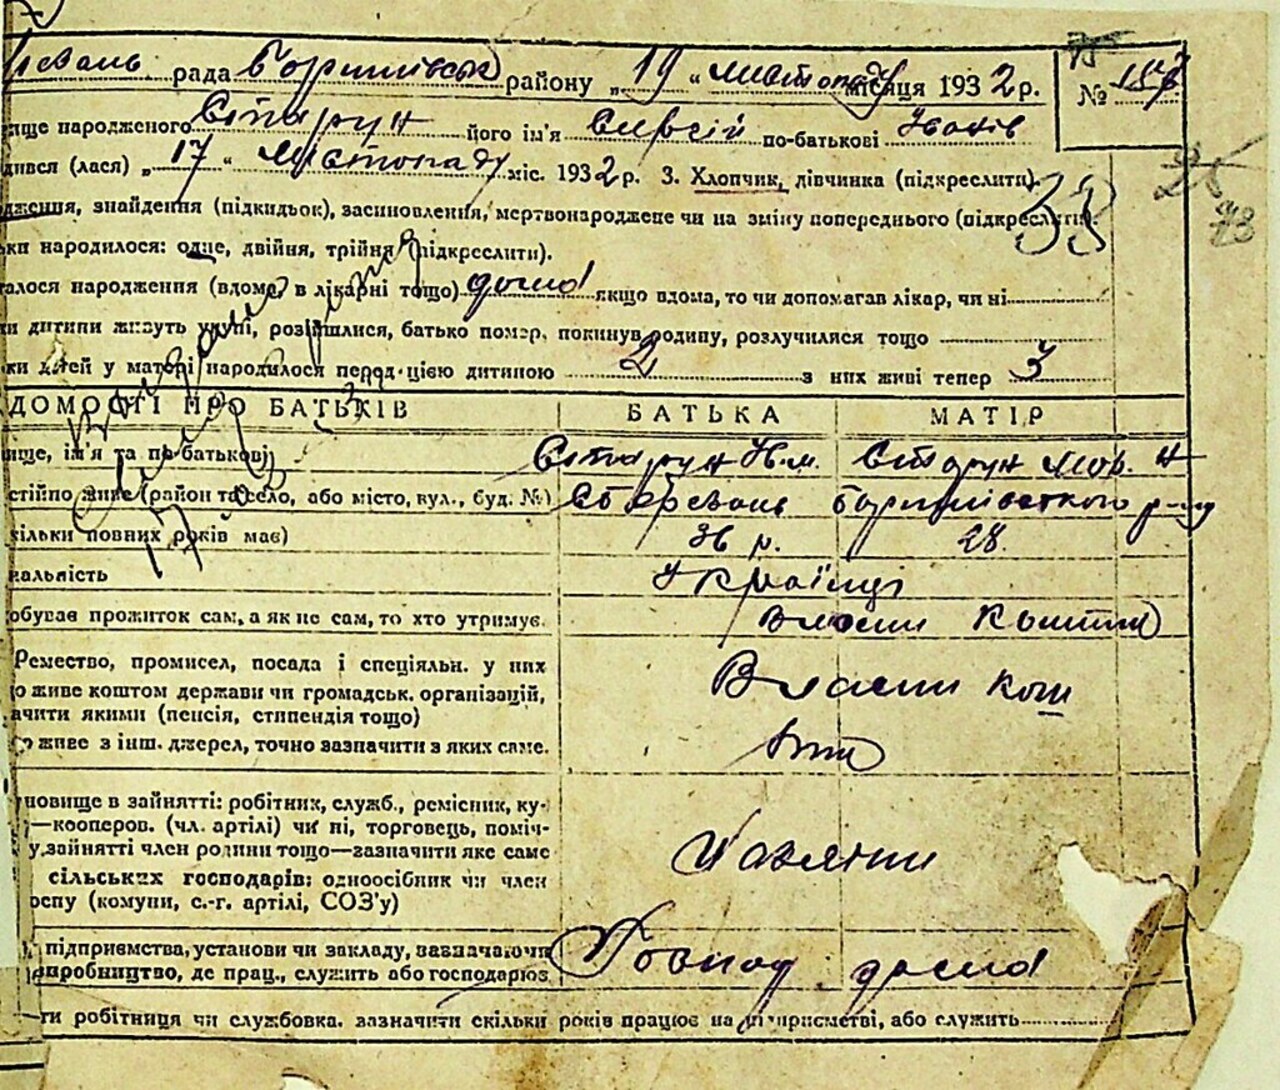 рада Баришівськ району „ 19 “ листопаду місяця 1932 р. №
ище народженого Старун його ім'я Сергій по-батькові Іванів
дився (лася) „ 17 “ Листопаду міс. 1932 р. 3. Хлопчик, дівчинка (підкреслити).
дження, знайдення (підкидьок), засиновлення, мертвонароджене чи на зміну попереднього (підкреслити)
38
ьки народилося: одне, двійня, трійня (підкреслити).
талося народження (вдома, в лікарні тощо) дома якщо вдома, то чи допомагав лікар, чи ні
ки дитини живуть укупі, розійшлися, батько помер, покинув родину, розлучилися тощо
ки дітей у матері народилося перед цією дитиною 2 з них живі тепер 3
ДОМОСТІ ПРО БАТЬКІВ БАТЬКА МАТІР
ище, ім'я та по-батькові Старун Ів. м. Старун Мот. Н
стійно живе (район та село, або місто, вул., буд. №) С Березань Баришівського р-ну
кільки повних років має) 36 р. 28.
нальність Українці
обував прожиток сам, а як не сам, то хто утримує. Власни кошти
Ремество, промисел, посада і спеціяльн. у них Власни кош
о живе коштом держави чи громадськ. організацій,
ачити якими (пенсія, стипендія тощо)
о живе з інш. джерел, точно зазначити з яких саме. тти
новище в зайнятті: робітник, служб., ремісник, ку-
—кооперов. (чл. артілі) чи ні, торговець, поміч-
у зайнятті член родини тощо—зазначити яке саме
сільських господарів: одноосібник чи член
оспу (комуни, с.-г. артілі, СОЗ'у)
підприємства, установи чи закладу, зазначаючи
виробництво, де прац., служить або господарює. дома
ти робітниця чи службовка. зазначити скільки років працює на підприємстві, або служить